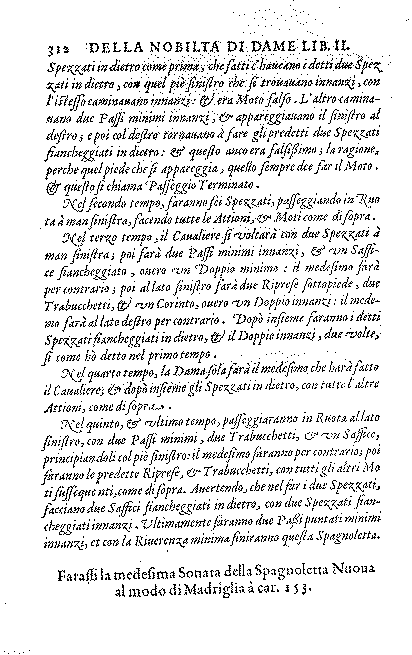 312 DELLA NOBILTA DI DAME LIB. II.
Spezzati in dietro come prima, che fatti c'haueano i detti due Spez
zati in dietro, con quel piè sinistro che si trouauano innanzi, con
l'istesso caminauano innanzi: & era Moto falso. L'altro camina-
uano due Passi minimi innanzi, & appareggiauano il sinistro al
destro; e poi col destro tornauano à fare gli predetti due Spezzati
fiancheggiati in dietro: & questo ancora era falsissimo; la ragione,
perche quel piede che si appareggia, quello sempre dee far il Moto.
& questo si chiama Passeggio Terminato.
Nel secondo tempo, faranno sei Spezzati, passeggiando in Ruo
ta à man sinistra, facendo tutte le Attioni, & Moti come di sopra.
Nel terzo tempo, il Caualiere si voltarà con due Spezzati à
man sinistra; poi farà due Passi minimi innanzi, & vn Saffi-
ce fiancheggiato, ouero vn Doppio minimo: il medesimo farà
per contrario; poi al lato sinistro farà due Riprese sottopiede, due
Trabucchetti, & vn Corinto, ouero vn Doppio innanzi: il mede-
mo farà al lato destro per contrario. Dopò insieme faranno i detti
Spezzati fiancheggiati in dietro, & il Doppio innanzi, due volte,
sì come hò detto nel primo tempo.
Nel quarto tempo, la Dama sola farà il medesimo che harà fatto
il Caualiere; & dopò insieme gli Spezzati in dietro, con tutte l'altre
Attioni, come di sopra.
Nel quinto, & vltimo tempo, passeggiaranno in Ruota al lato
sinistro, con due Passi minimi, due Trabucchetti, & vn Saffice,
principiandoli col piè sinistro: il medesimo faranno per contrario; poi
faranno le predette Riprese, & Trabucchetti, con tutti gli altri Mo
ti sussequenti, come di sopra. Auertendo, che nel far i due Spezzati,
facciano due Saffici fiancheggiati in dietro, con due Spezzati fian-
cheggiati innanzi. Vltimamente faranno due Passi puntati minimi
innanzi, et con la Riuerenza minima finiranno questa Spagnoletta.
Farassi la medesima Sonata della Spagnoletta Nuoua
al modo di Madriglia à car. 153.